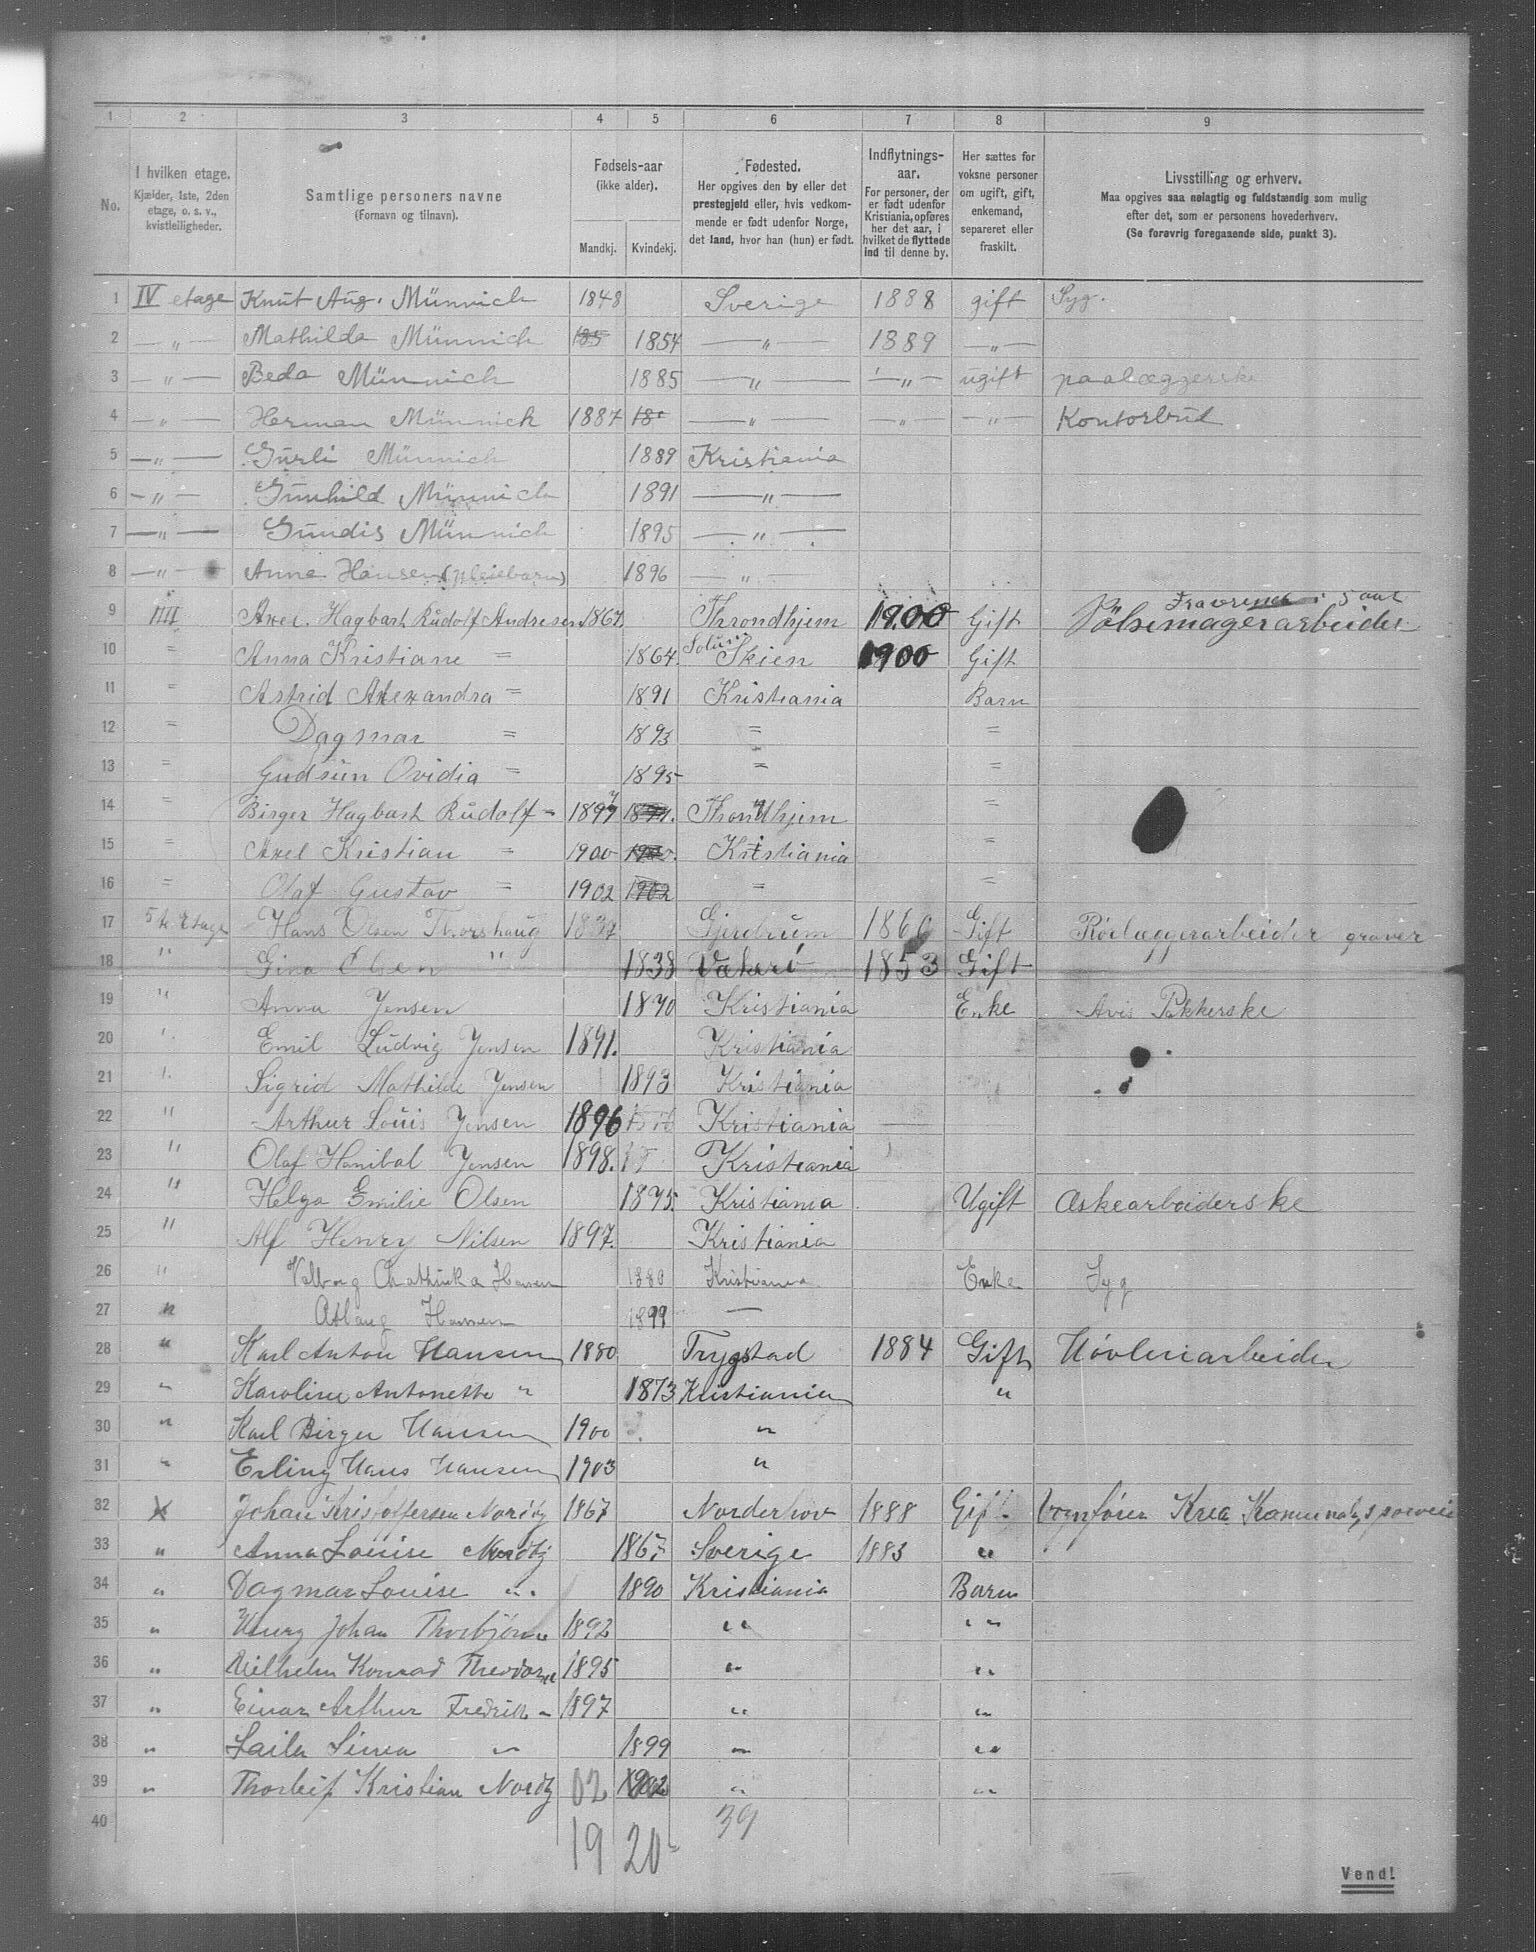 1 2 3 4 5 6 7 8 9
No.
I hvilken etage.
Kjælder, 1ste, 2den
etage, o. s. v.,
kvistleiligheder.
Samtlige personers navne
(Fornavn og tilnavn).
Fødsels-aar
(ikke alder).
Mandkj. Kvindekj.
Fødested.
Her opgives den by eller det
prestegjeld eller, hvis vedkom-
mende er født udenfor Norge,
det land, hvor han (hun) er født.
Indflytnings-
aar.
For personer, der
er født udenfor
Kristiania, opføres
her det aar, i
hvilket de flyttede
ind til denne by.
Her sættes for
voksne personer
om ugift, gift,
enkemand,
separeret eller
fraskilt.
Livsstilling og erhverv.
Maa opgives saa nøiagtig og fuldstændig som mulig
efter det, som er personens hovederhverv.
(Se forøvrig foregaaende side, punkt 3).
1 IV etage Knut Aug. Münnich 1848 Sverige 1888 gift Syg.
2 — " — Mathilda Münnich 185 1854 — " — 1889 — " —
3 — " — Beda Münnich 1885 — " — — " — ugift paalæggerske
4 — " — Herman Münnich 1887 18 — " — — " — — " — Kontorbud
5 — " — Gurli Münnich 1889 Kristiania
6 — " — Gunhild Münnich 1891 — " —
7 — " — Gundis Münnich 1895 — " —
8 — " — Anna Hansen (pleiebarn) 1896 — " —
Fravrenet i 5 aar
9 IIII Axel Hagbart Rudolf Andresen 1867 Throndhjem 1900 Gift Pölsemagerarbeider
10 " Anna Kristiane = 1864 Solum Skien 1900 Gift
11 " Astrid Alexandra = 1891 Kristiania Barn
12 = Dagmar = 1893 = =
13 = Gudrun Ovidia = 1895 = =
14 = Birger Hagbart Rudolf = 1897 1897. Throndhjem =
15 = Axel Kristian = 1900 1900. Kristiania =
16 = Olaf Gustav = 1902 1902 = =
17 5te Etage Hans Olsen Thorshaug 1837 Gjerdrum 1866 Gift Rörlæggerarbeider graver
18 " Gina Olsen " 1838 1853 Gift
19 " Anna Jensen 1870 Kristiania Enke Avis Pakkerske
20 " Emil Ludvig Jensen 1891. Kristiania
21 " Sigrid Mathilde Jensen 1893 Kristiania
22 " Arthur Louis Jensen 1896 Kristiania
23 " Olaf Hanibal Jensen 1898. Kristiania
24 " Helga Emilie Olsen 1875. Kristiania Ugift Æskearbeiderske
25 " Alf Henry Nilsen 1897. Kristiania
26 " Valborg Hansen 1880 Kristiania Enke Syg
27 " Aslaug Hansen 1899 —
28 " Karl Anton Hansen 1880 Trygstad 1884 Gift Hövleriarbeider
29 " Karoline Antonette " 1873 Kristiania "
30 " Karl Birger Hansen 1900 "
31 " Erling Hans Hansen 1903 "
32 Johan Kristoffersen Nordby 1867 Norderhov 1888 Gift. Vognfører Kria Komunalsporvei
33 " Anna Louise Nordby 1867 Sverige 1883 "
34 " Dagmar Louise " 1890 Kristiania Barn
35 " Henry Johan Thorbjörn " 1892 " "
36 " Vilhelm Konrad Theodor " 1895 " "
37 " Einar Arthur Fredrik " 1897 " "
38 " Laila Linea " 1899 " "
39 " Thorleif Kristian Nordby 02 1902 " "
40 19 20 39
Vend!